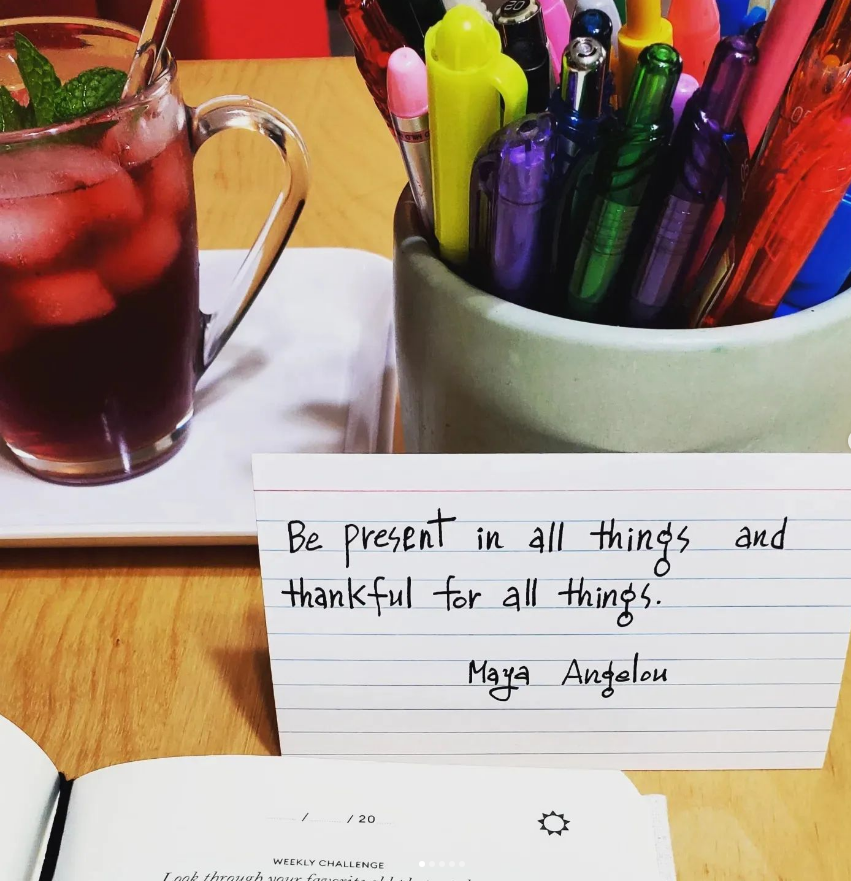 Be present in all things and
thankful for all things.
Maya Angelou
/ / 20
WEEKLY CHALLENGE
Look through your favorite